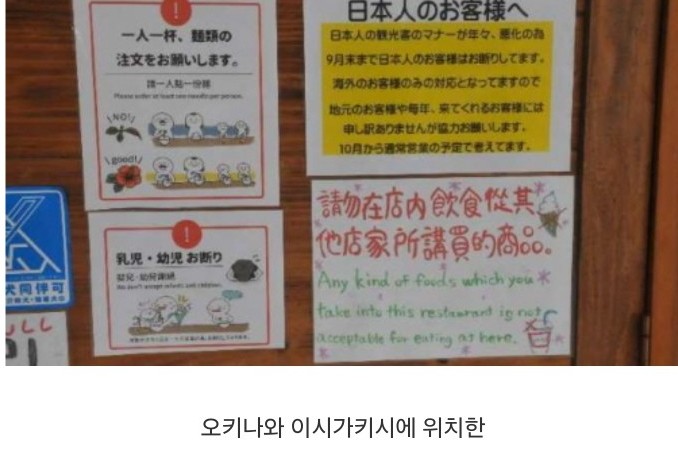 !
一人一杯、麺類の
注文をお願いします。
請一人點一份麵
Please order at least one noodle per person.
NO!
good!
!
乳児・幼児 お断り
嬰兒·幼兒謝絕
We don't accept infants and children.
犬同伴可
日本人のお客様へ
日本人の観光客のマナーが年々、悪化の為
9月末まで日本人のお客様はお断りしてます。
海外のお客様のみの対応となってますので
地元のお客様や毎年、来てくれるお客様には
申し訳ありませんが協力お願いします。
10月から通常営業の予定で考えてます。
請勿在店內飲食從其
他店家所講買的商品。
Any kind of foods which you
take into this restaurant is not
acceptable for eating at here.
오키나와 이시가키시에 위치한